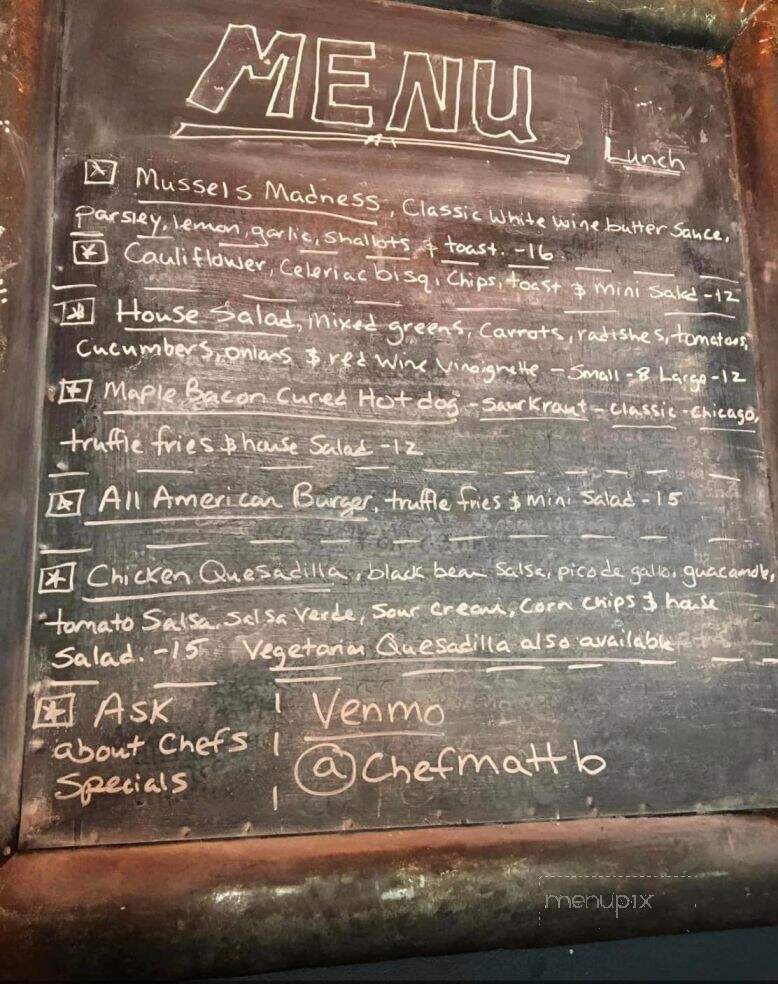 MENU
Lunch
Mussels Madness, Classic White wine butter Sauce,
parsley, lemon, garlic, shallots & toast. -16
Cauliflower, Celeriac bisq, Chips, toast & mini Salad -12
House Salad, mixed greens, Carrots, radishes, tomatoes,
Cucumbers, onions & red wine Vinaignette - Small -8 Large -12
Maple Bacon Cured Hot dog - SaurKraut - Classic - Chicago,
truffle fries & house Salad -12
All American Burger, truffle fries & mini Salad -15
Chicken Quesadilla, black bean Salsa, pico de gallo, guacamole,
tomato Salsa, Salsa Verde, Sour Cream, Corn Chips & house
Salad. -15 Vegetarian Quesadilla also available
Ask
about Chefs
Specials
Venmo
@Chefmattb
menupix